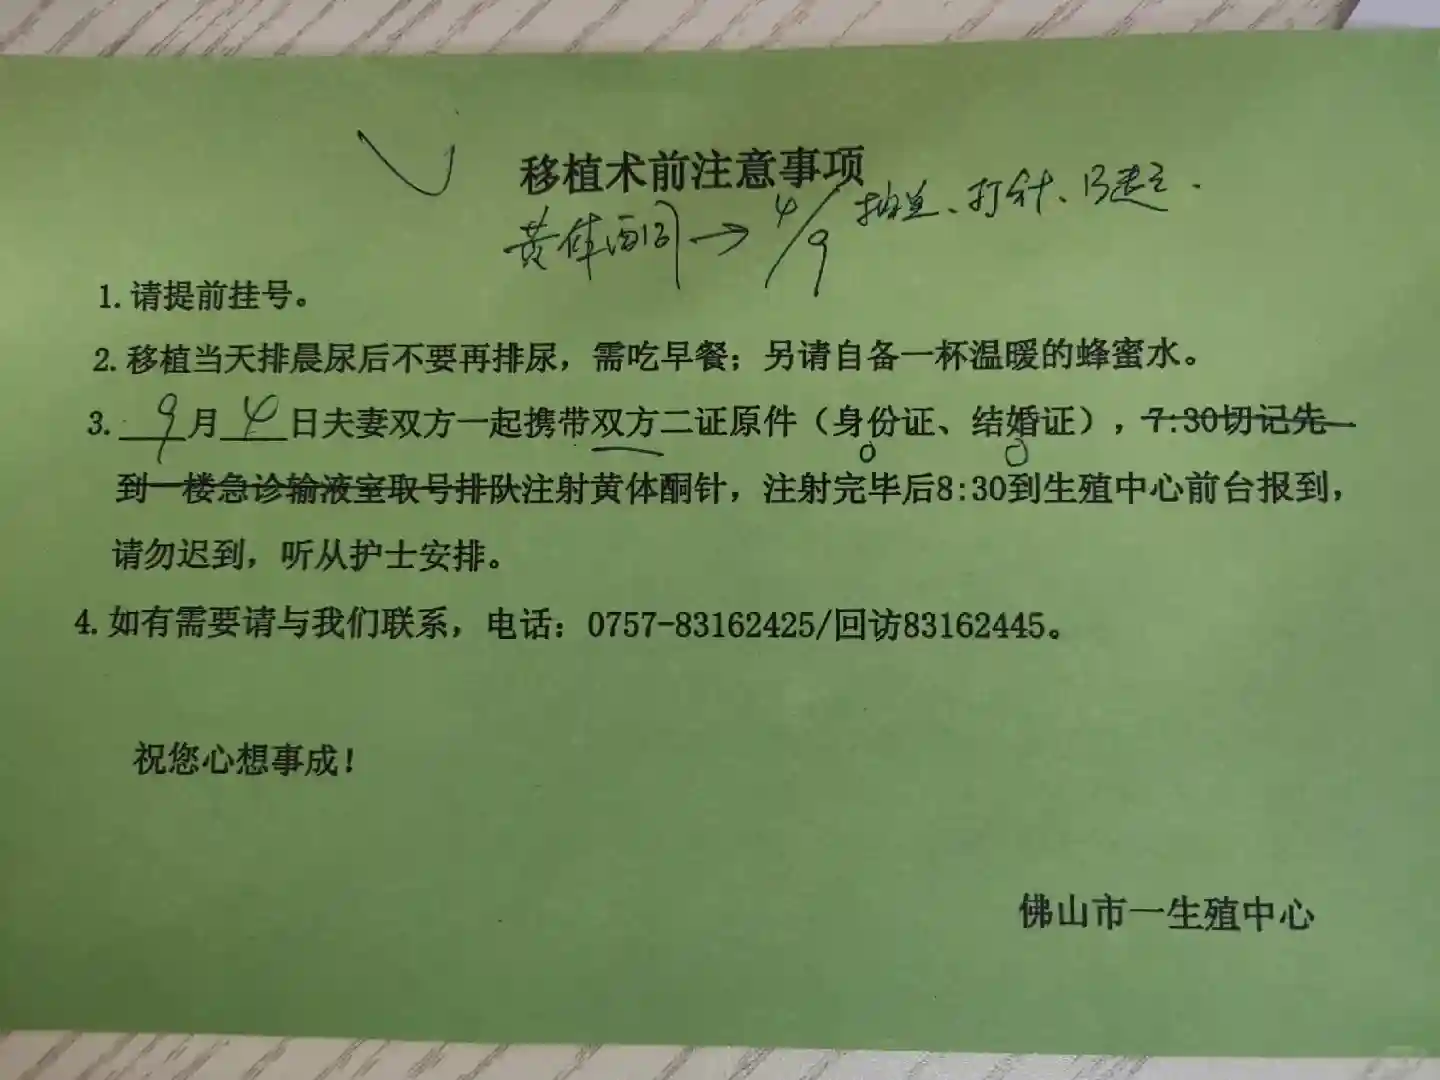 移植术前注意事项
黄体酮 → 4/9 抽血、打针、B超、
1. 请提前挂号。
2. 移植当天排晨尿后不要再排尿，需吃早餐；另请自备一杯温暖的蜂蜜水。
3. 9月4日夫妻双方一起携带双方二证原件（身份证、结婚证），7:30切记先
到一楼急诊输液室取号排队注射黄体酮针，注射完毕后8:30到生殖中心前台报到，
请勿迟到，听从护士安排。
4. 如有需要请与我们联系，电话：0757-83162425/回访83162445。
祝您心想事成！
佛山市一生殖中心